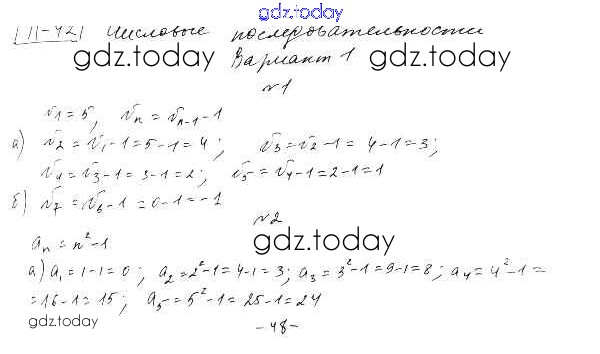 gdz.today
П-42 Числовые последовательности
gdz.today Вариант 1 gdz.today
№1
v₁ = 5, vₙ = vₙ₋₁ - 1
а) v₂ = v₁ - 1 = 5 - 1 = 4; v₃ = v₂ - 1 = 4 - 1 = 3;
v₄ = v₃ - 1 = 3 - 1 = 2; v₅ = v₄ - 1 = 2 - 1 = 1
б) v₇ = v₆ - 1 = 0 - 1 = -1
№2
aₙ = n² - 1
gdz.today
а) a₁ = 1 - 1 = 0; a₂ = 2² - 1 = 4 - 1 = 3; a₃ = 3² - 1 = 9 - 1 = 8; a₄ = 4² - 1 =
= 16 - 1 = 15; a₅ = 5² - 1 = 25 - 1 = 24
gdz.today
- 48 -